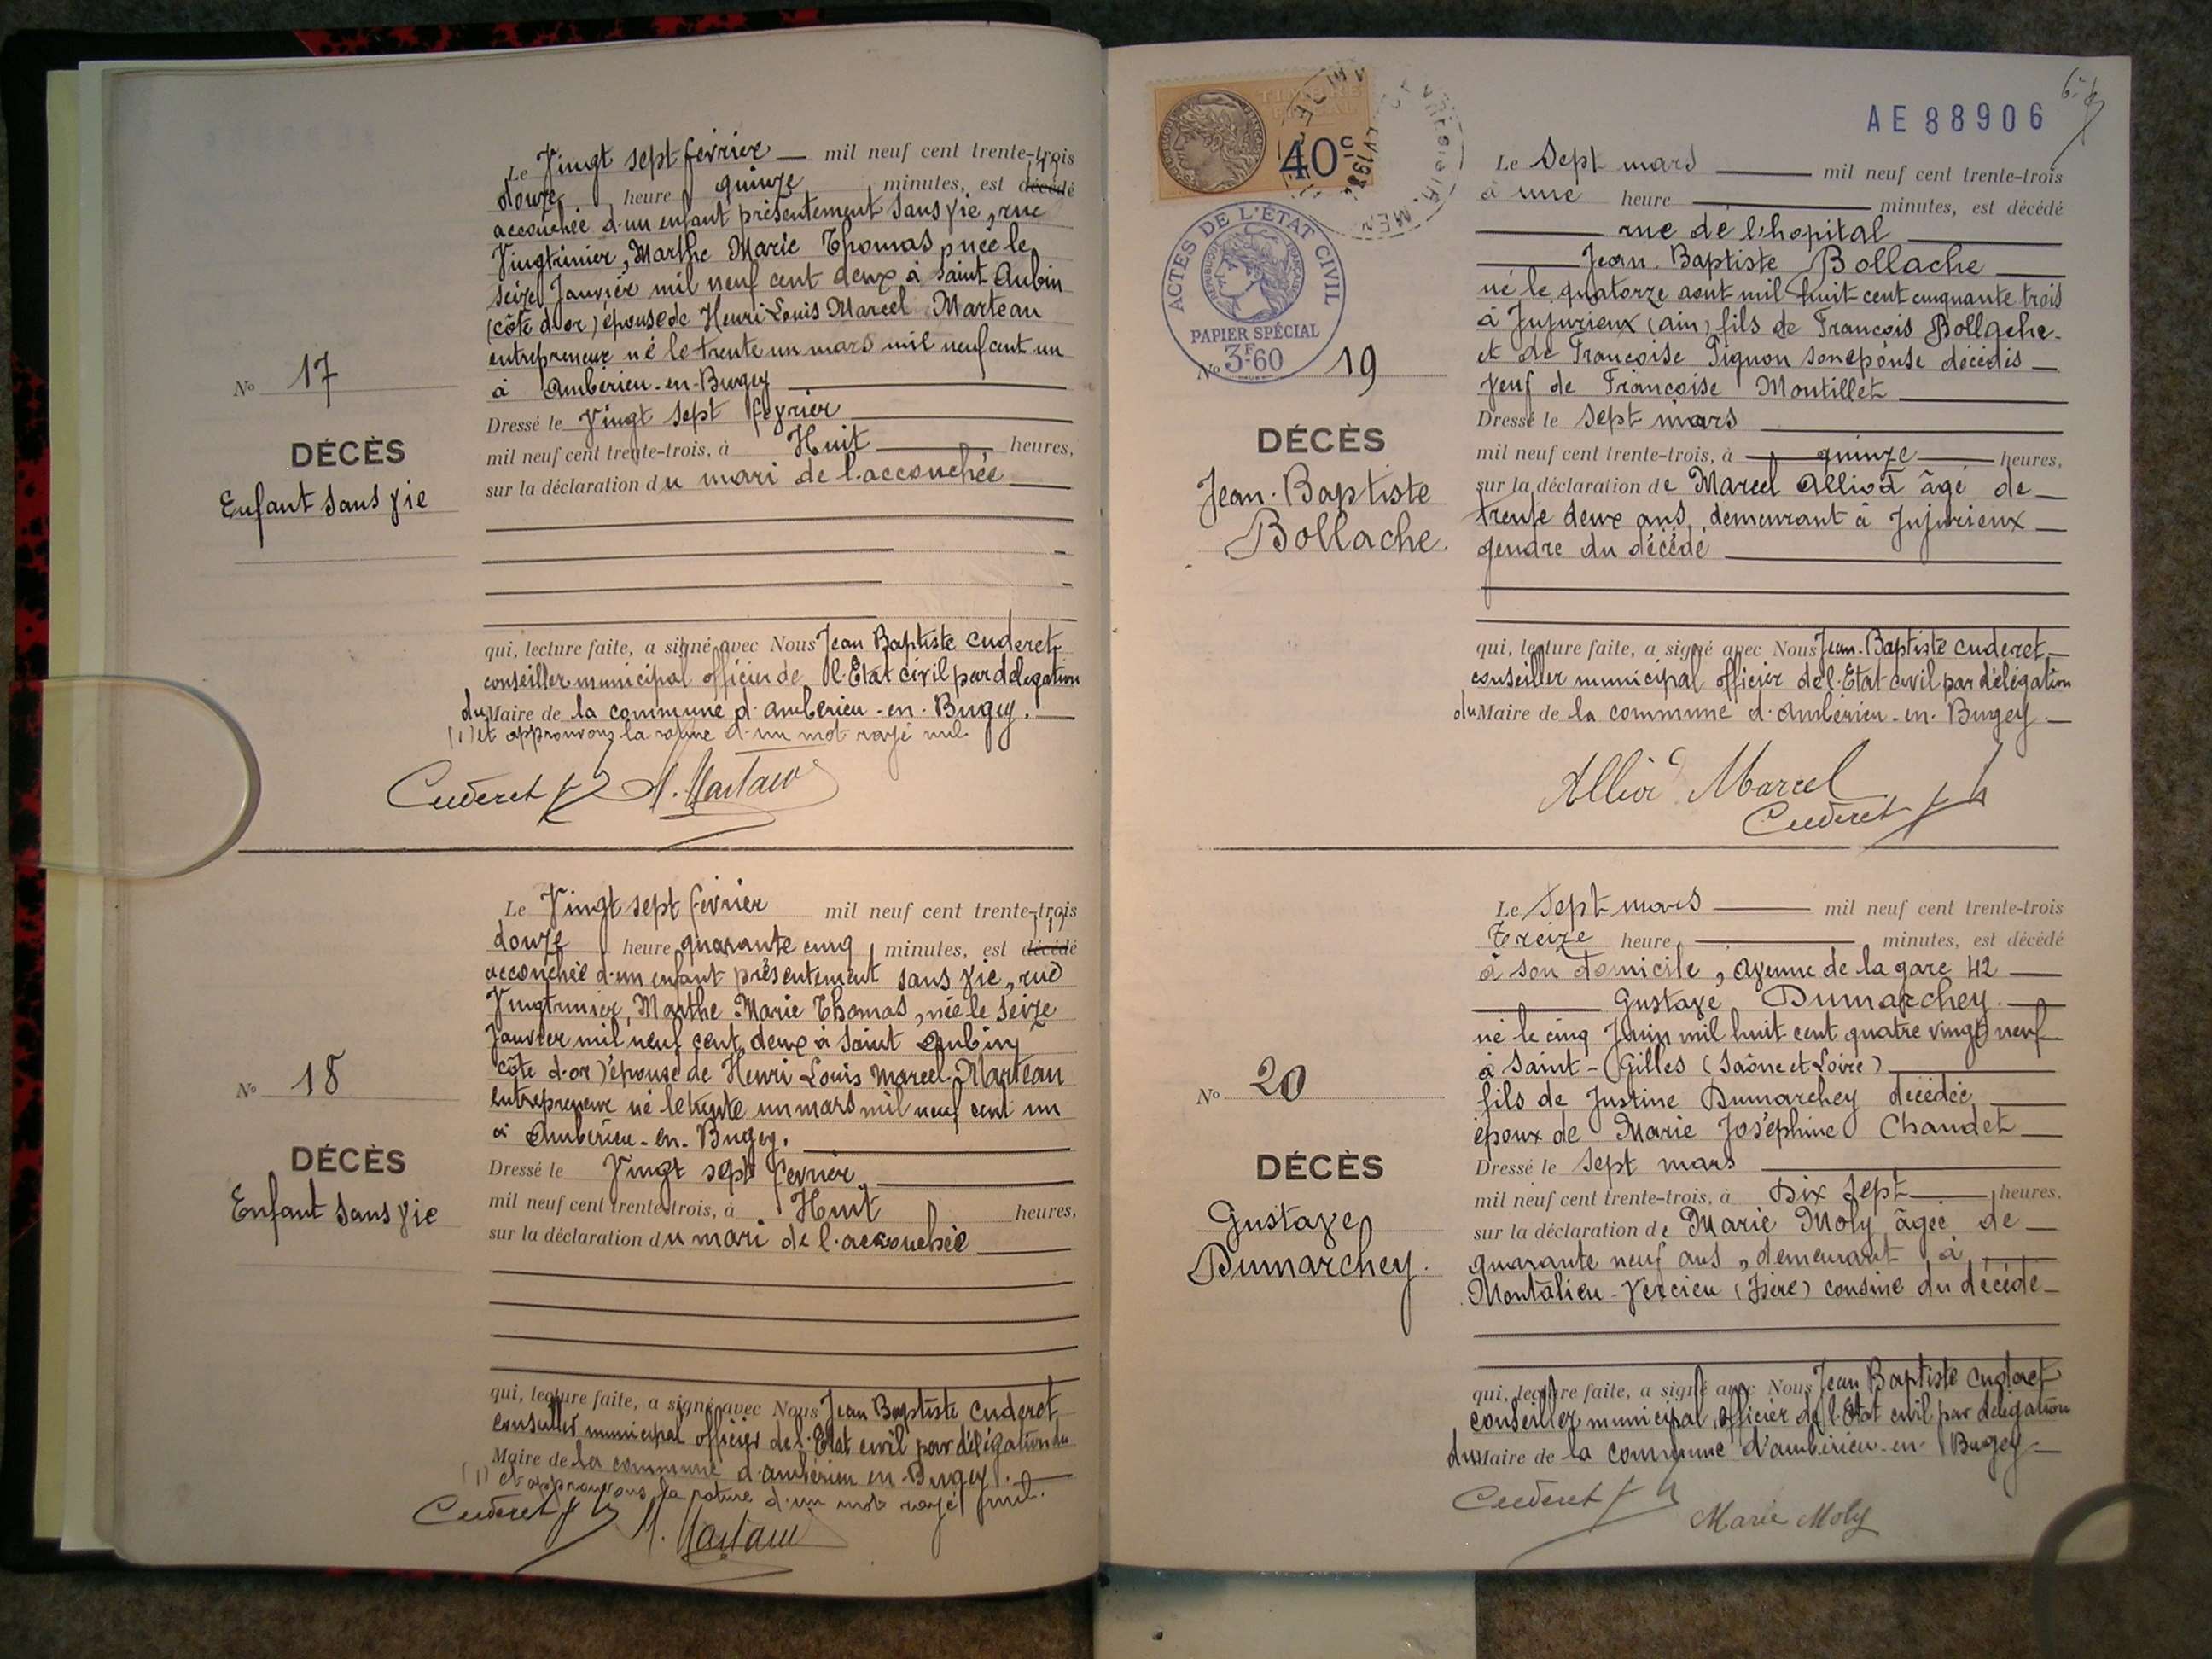 Le Vingt sept février mil neuf cent trente-trois
douze heure quinze minutes, est décédé (1)
accouchée d'un enfant présentement sans vie, rue
Vingtrinier, Marthe Marie Thomas, née le
seize Janvier mil neuf cent deux à Saint Aubin
(côte d'or) épouse de Henri Louis Marcel Marteau
entrepreneur né le trente un mars mil neuf cent un
à Ambérieu-en-Bugey
Dressé le Vingt sept février
mil neuf cent trente-trois, à Huit heures,
sur la déclaration du mari de l'accouchée
No 17
DÉCÈS
Enfant sans vie
qui, lecture faite, a signé avec Nous Jean Baptiste Cuderet
conseiller municipal officier de l'Etat civil par délégation
du Maire de la commune d'Ambérieu-en-Bugey.
(1) et approuvons la rature d'un mot rayé nul
Cuderet M. Marteau
Le Vingt sept février mil neuf cent trente-trois
douze heure quarante cinq minutes, est décédé (1)
accouchée d'un enfant présentement sans vie, rue
Vingtrinier, Marthe Marie Thomas, née le seize
Janvier mil neuf cent deux à Saint Aubin
côte d'or) épouse de Henri Louis Marcel Marteau
entrepreneur né le trente un mars mil neuf cent un
à Ambérieu-en-Bugey.
Dressé le Vingt sept fevrier
mil neuf cent trente-trois, à Huit heures,
sur la déclaration du mari de l'accouchée
No 18
DÉCÈS
Enfant sans vie
qui, lecture faite, a signé avec Nous Jean Baptiste Cuderet
conseiller municipal officier de l'Etat civil par délégation du
Maire de la commune d'ambérieu en Bugey.
(1) et approuvons la rature d'un mot rayé nul.
Cuderet M. Marteau
TIMBRE FISCAL
40c
AE 88906
ACTES DE L'ÉTAT CIVIL
RÉPUBLIQUE FRANÇAISE
PAPIER SPÉCIAL
3F60
Le Sept mars mil neuf cent trente-trois
à une heure minutes, est décédé
rue de l'hopital
Jean-Baptiste Bollache
né le quatorze aout mil huit cent cinquante trois
à Jujurieux (ain) fils de François Bollache
et de Françoise Pignon son épouse décédés
veuf de Françoise Montillet
Dressé le sept mars
mil neuf cent trente-trois, à quinze heures,
sur la déclaration de Marcel Alliod âgé de
trente deux ans, demeurant à Jujurieux
gendre du décédé
No 19
DÉCÈS
Jean-Baptiste
Bollache.
qui, lecture faite, a signé avec Nous Jean-Baptiste Cuderet,
conseiller municipal officier de l'Etat-civil par délégation
du Maire de la commune d'Ambérieu-en-Bugey
Alliod Marcel
Cuderet
Le Sept mars mil neuf cent trente-trois
Treize heure minutes, est décédé
à son domicile, avenue de la gare 42
Gustave Dumarchey.
né le cinq Juin mil huit cent quatre vingt neuf
à Saint-Gilles (Saône et Loire)
fils de Justine Dumarchey décédée
époux de Marie Joséphine Chaudet
Dressé le sept mars
mil neuf cent trente-trois, à Dix sept heures,
sur la déclaration de Marie Moly âgée de
quarante neuf ans, demeurant à
Montalieu-Vercieu (Isère) cousine du décédé
No 20
DÉCÈS
Gustave
Dumarchey.
qui, lecture faite, a signé avec Nous Jean Baptiste Cuderet
conseiller municipal, officier de l'Etat civil par délégation
du Maire de la commune d'ambérieu-en-Bugey
Cuderet
Marie Moly